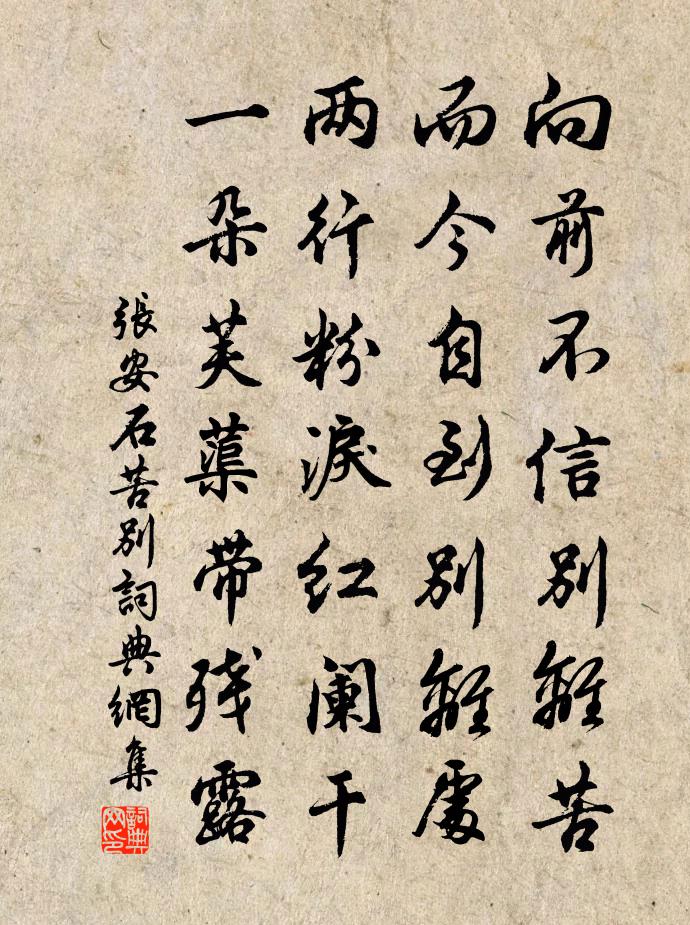 向前不信别離苦
而今自到别離處
两行粉淚红阑干
一朵芙蕖带残露
張安石苦别詞典網集
詞典网印